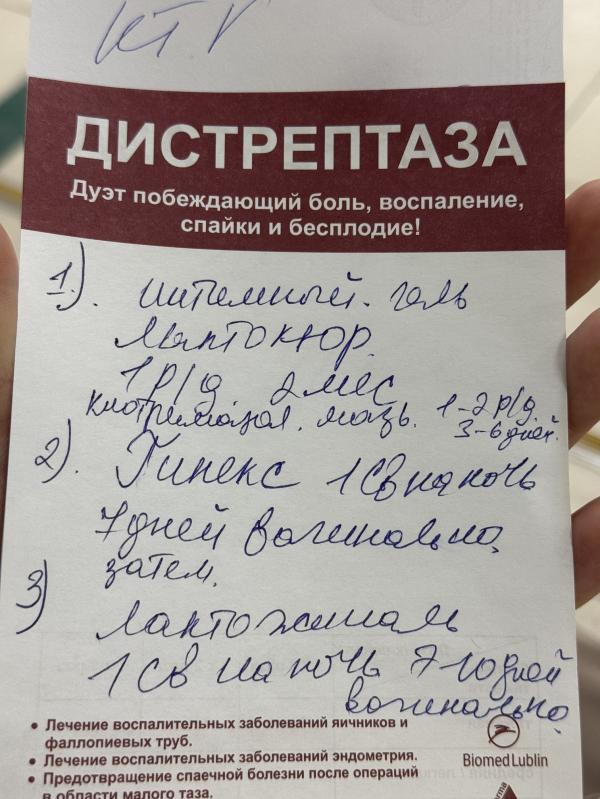 КТГ
ДИСТРЕПТАЗА
Дуэт побеждающий боль, воспаление,
спайки и бесплодие!
1). интемный. гель
Лактокюр.
1 р/д 2 мес
клотримазол. мазь. 1-2 р/д.
3-6 дней.
2). Гинекс 1 св на ночь
7 дней вагинально,
затем.
3) Лактожиналь
1 св на ночь 7-10 дней
вагинально
• Лечение воспалительных заболеваний яичников и
фаллопиевых труб.
• Лечение воспалительных заболеваний эндометрия.
• Предотвращение спаечной болезни после операций
в области малого таза.
Biomed Lublin